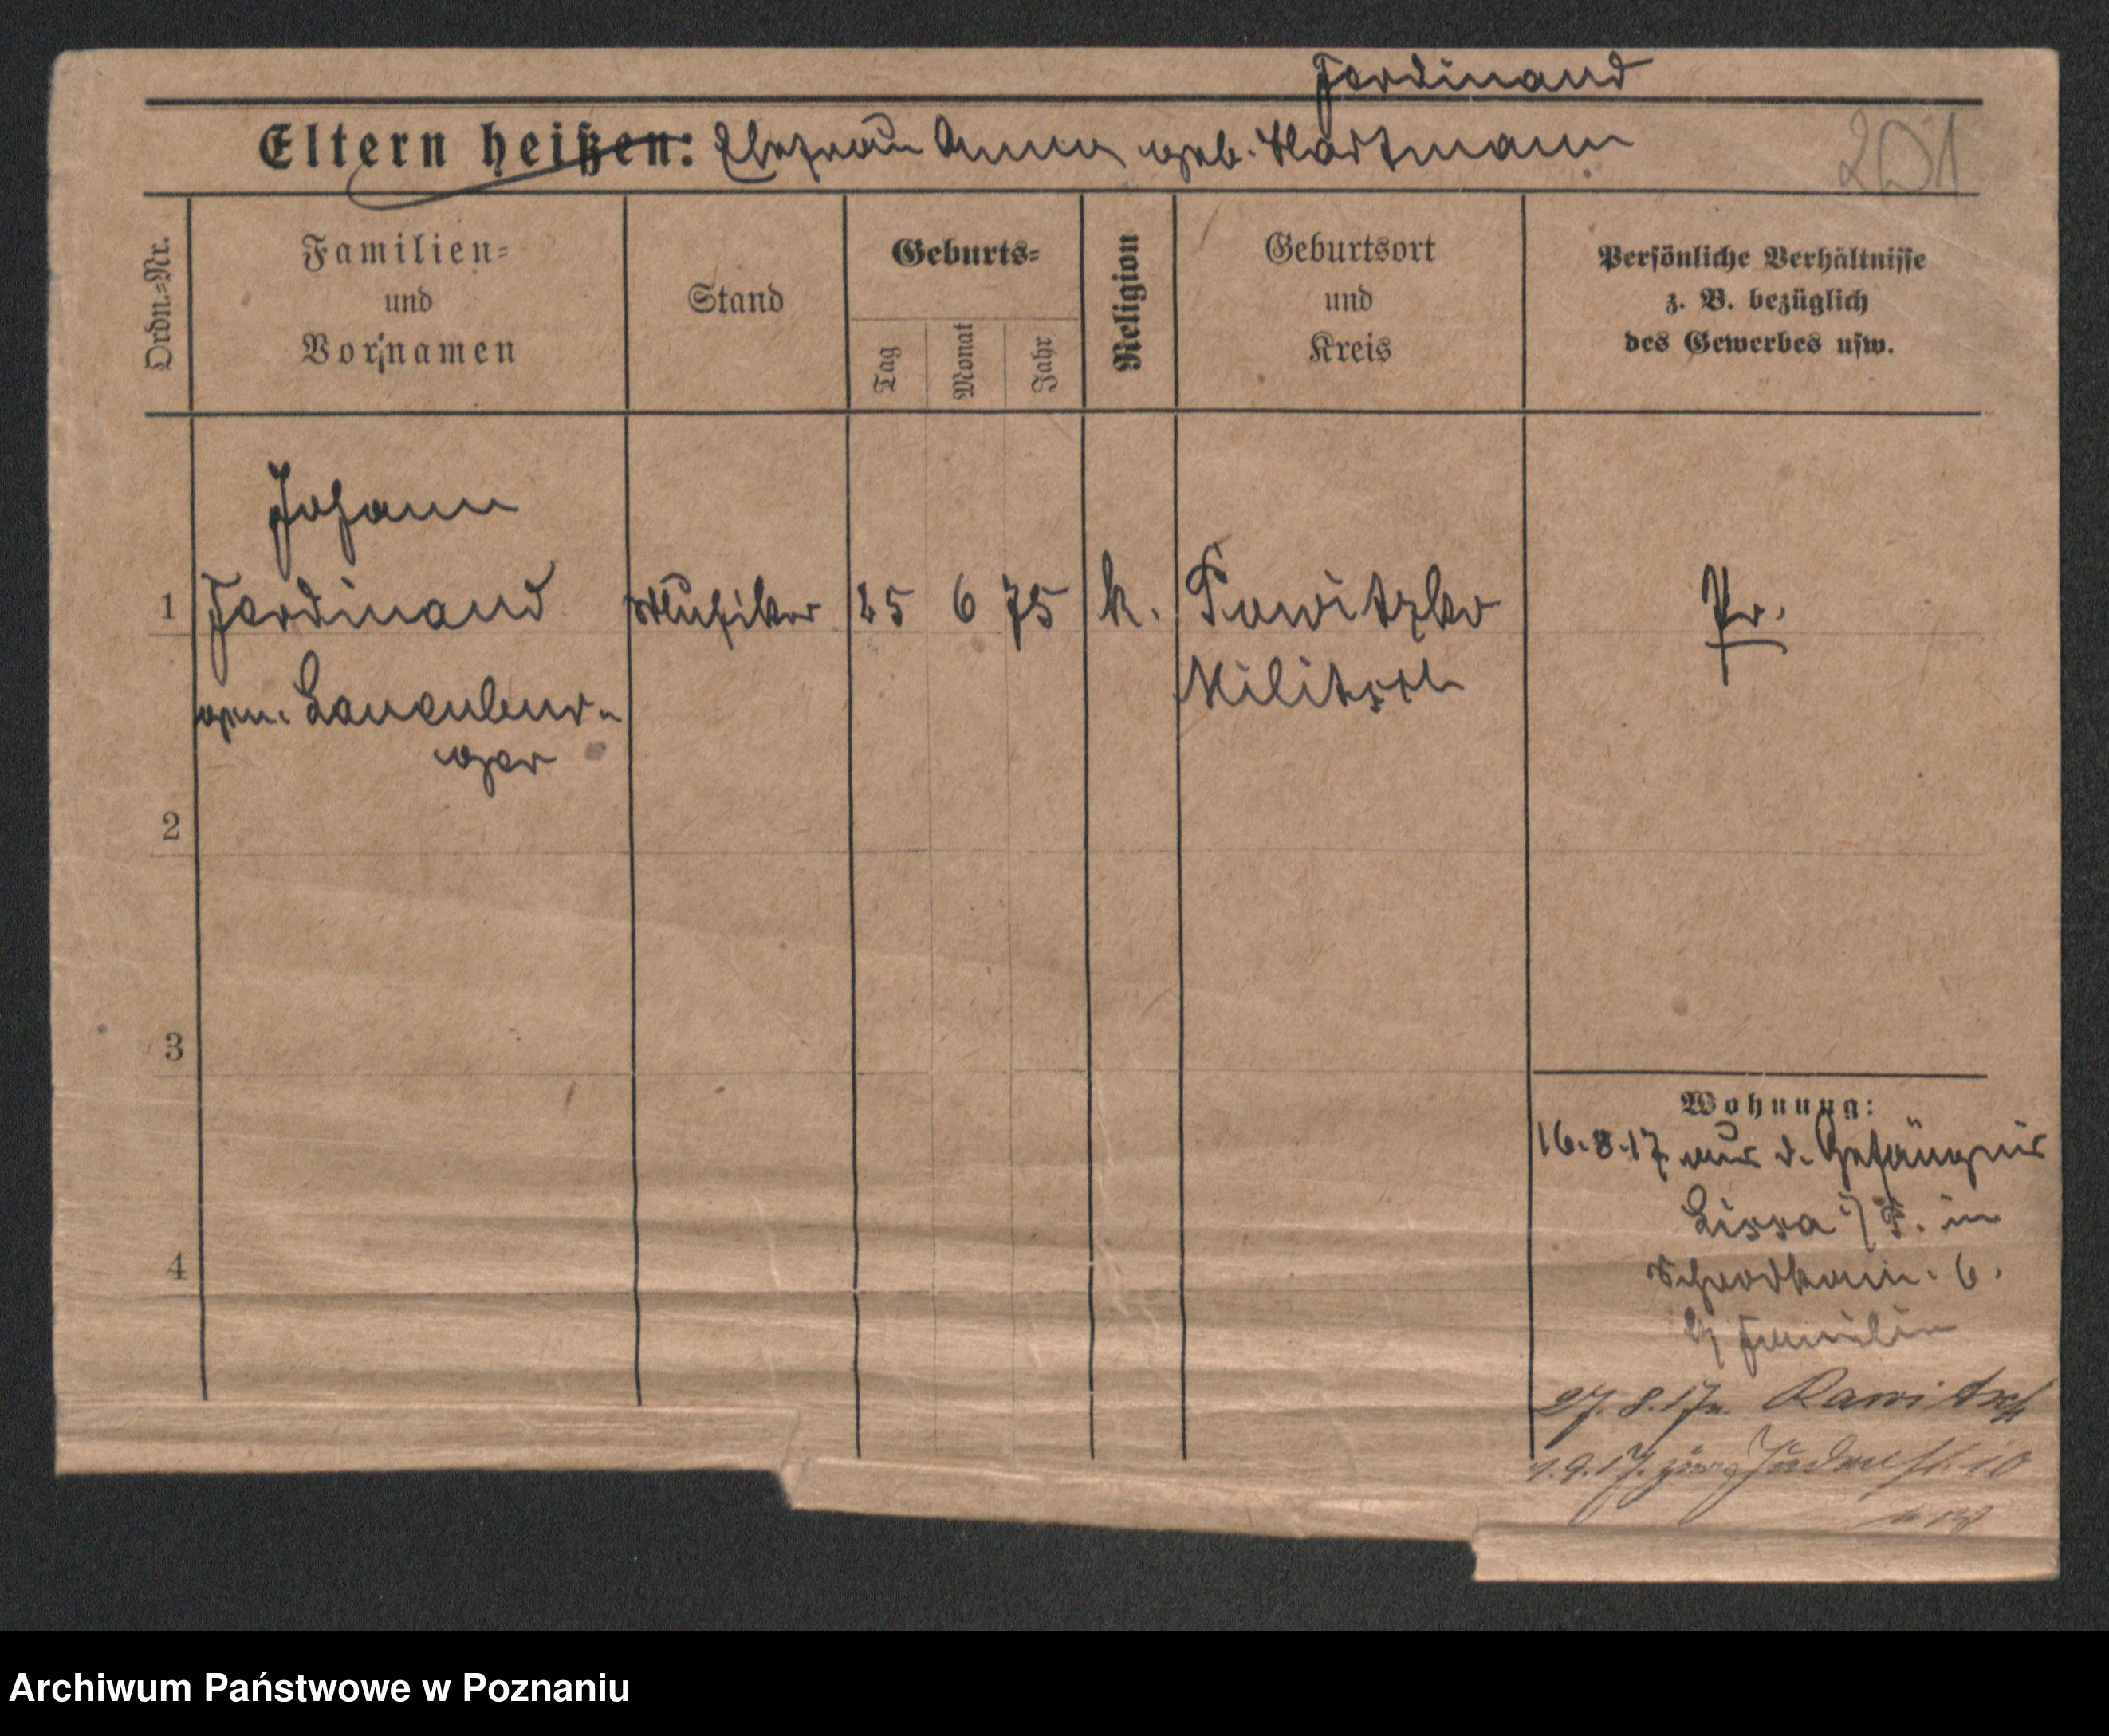 Ferdinand
Eltern heißen: Ehefrau Anna geb. Hartmann
201
Ordn.-Nr.
Familien-
und
Vornamen
Stand
Geburts-
Tag
Monat
Jahr
Religion
Geburtsort
und
Kreis
Persönliche Verhältnisse
z. B. bezüglich
des Gewerbes usw.
Johann
1 Ferdinand Musiker 25 6 75 k. Pr.
Militsch
gen. Lauenbur-
ger
2
3
Wohnung:
16.8.17 aus d. Gefängnis
Lissa i/P. in
4
6.
Familie
27.8.17 n. Rawitsch
1.9.17 zurg Judenstr. 10
Archiwum Państwowe w Poznaniu